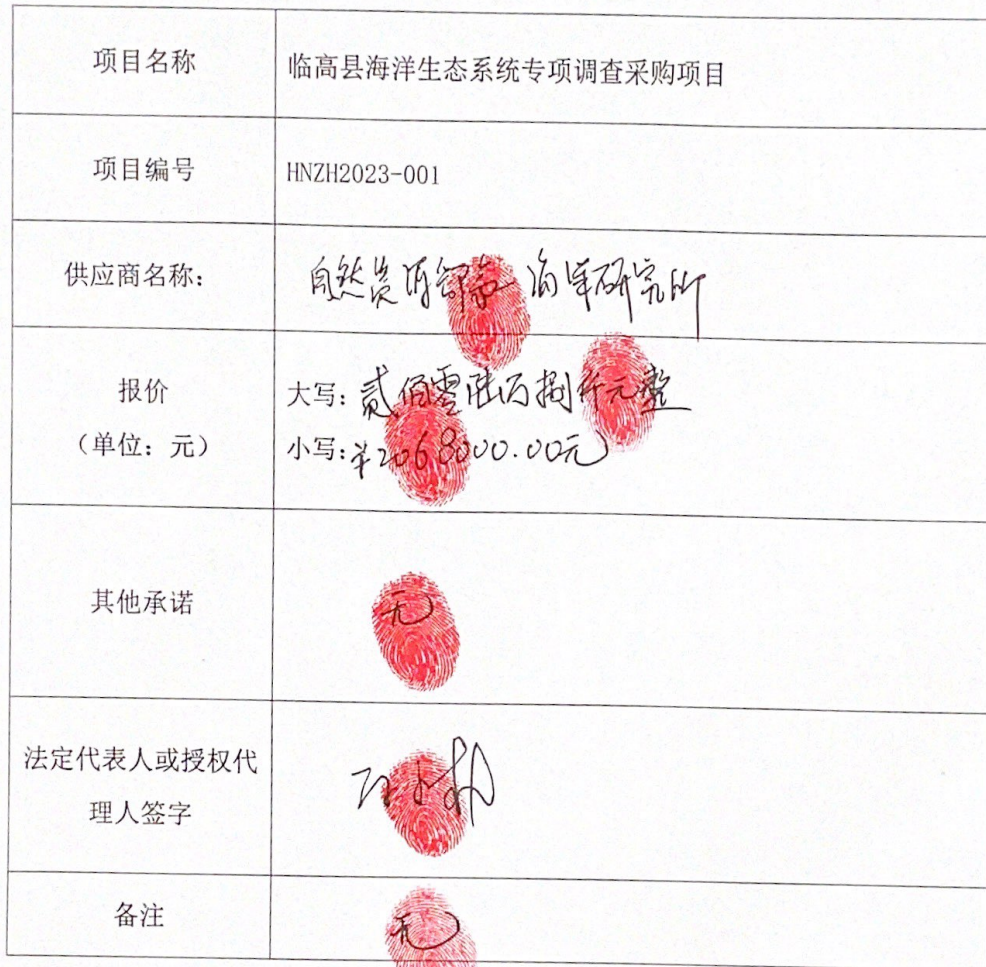 项目名称
临高县海洋生态系统专项调查采购项目
项目编号
HNZH2023-001
供应商名称:
自然资源部第一海洋研究所
报价
(单位:元)
大写:贰佰零陆万捌仟元整
小写:¥2068000.00元
其他承诺
无
法定代表人或授权代
理人签字
备注
无